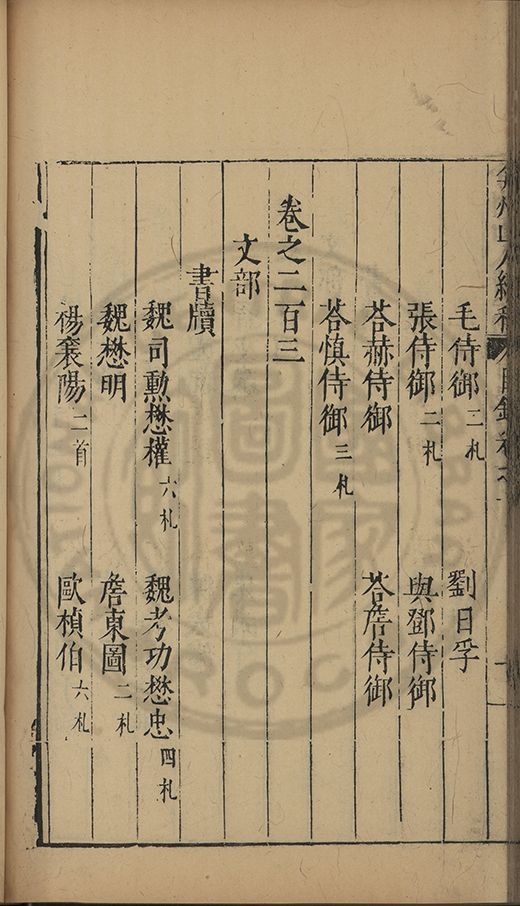 弇州山人續稿 目錄卷之
毛侍御 二札 劉日孚
張侍御 二札 與鄧侍御
荅赫侍御 荅詹侍御
荅慎侍御 三札
卷之二百三
文部
書牘
魏司勳懋權 六札 魏考功懋忠 四札
魏懋明 詹東圖 二札
楊襄陽 二首 歐楨伯 六札